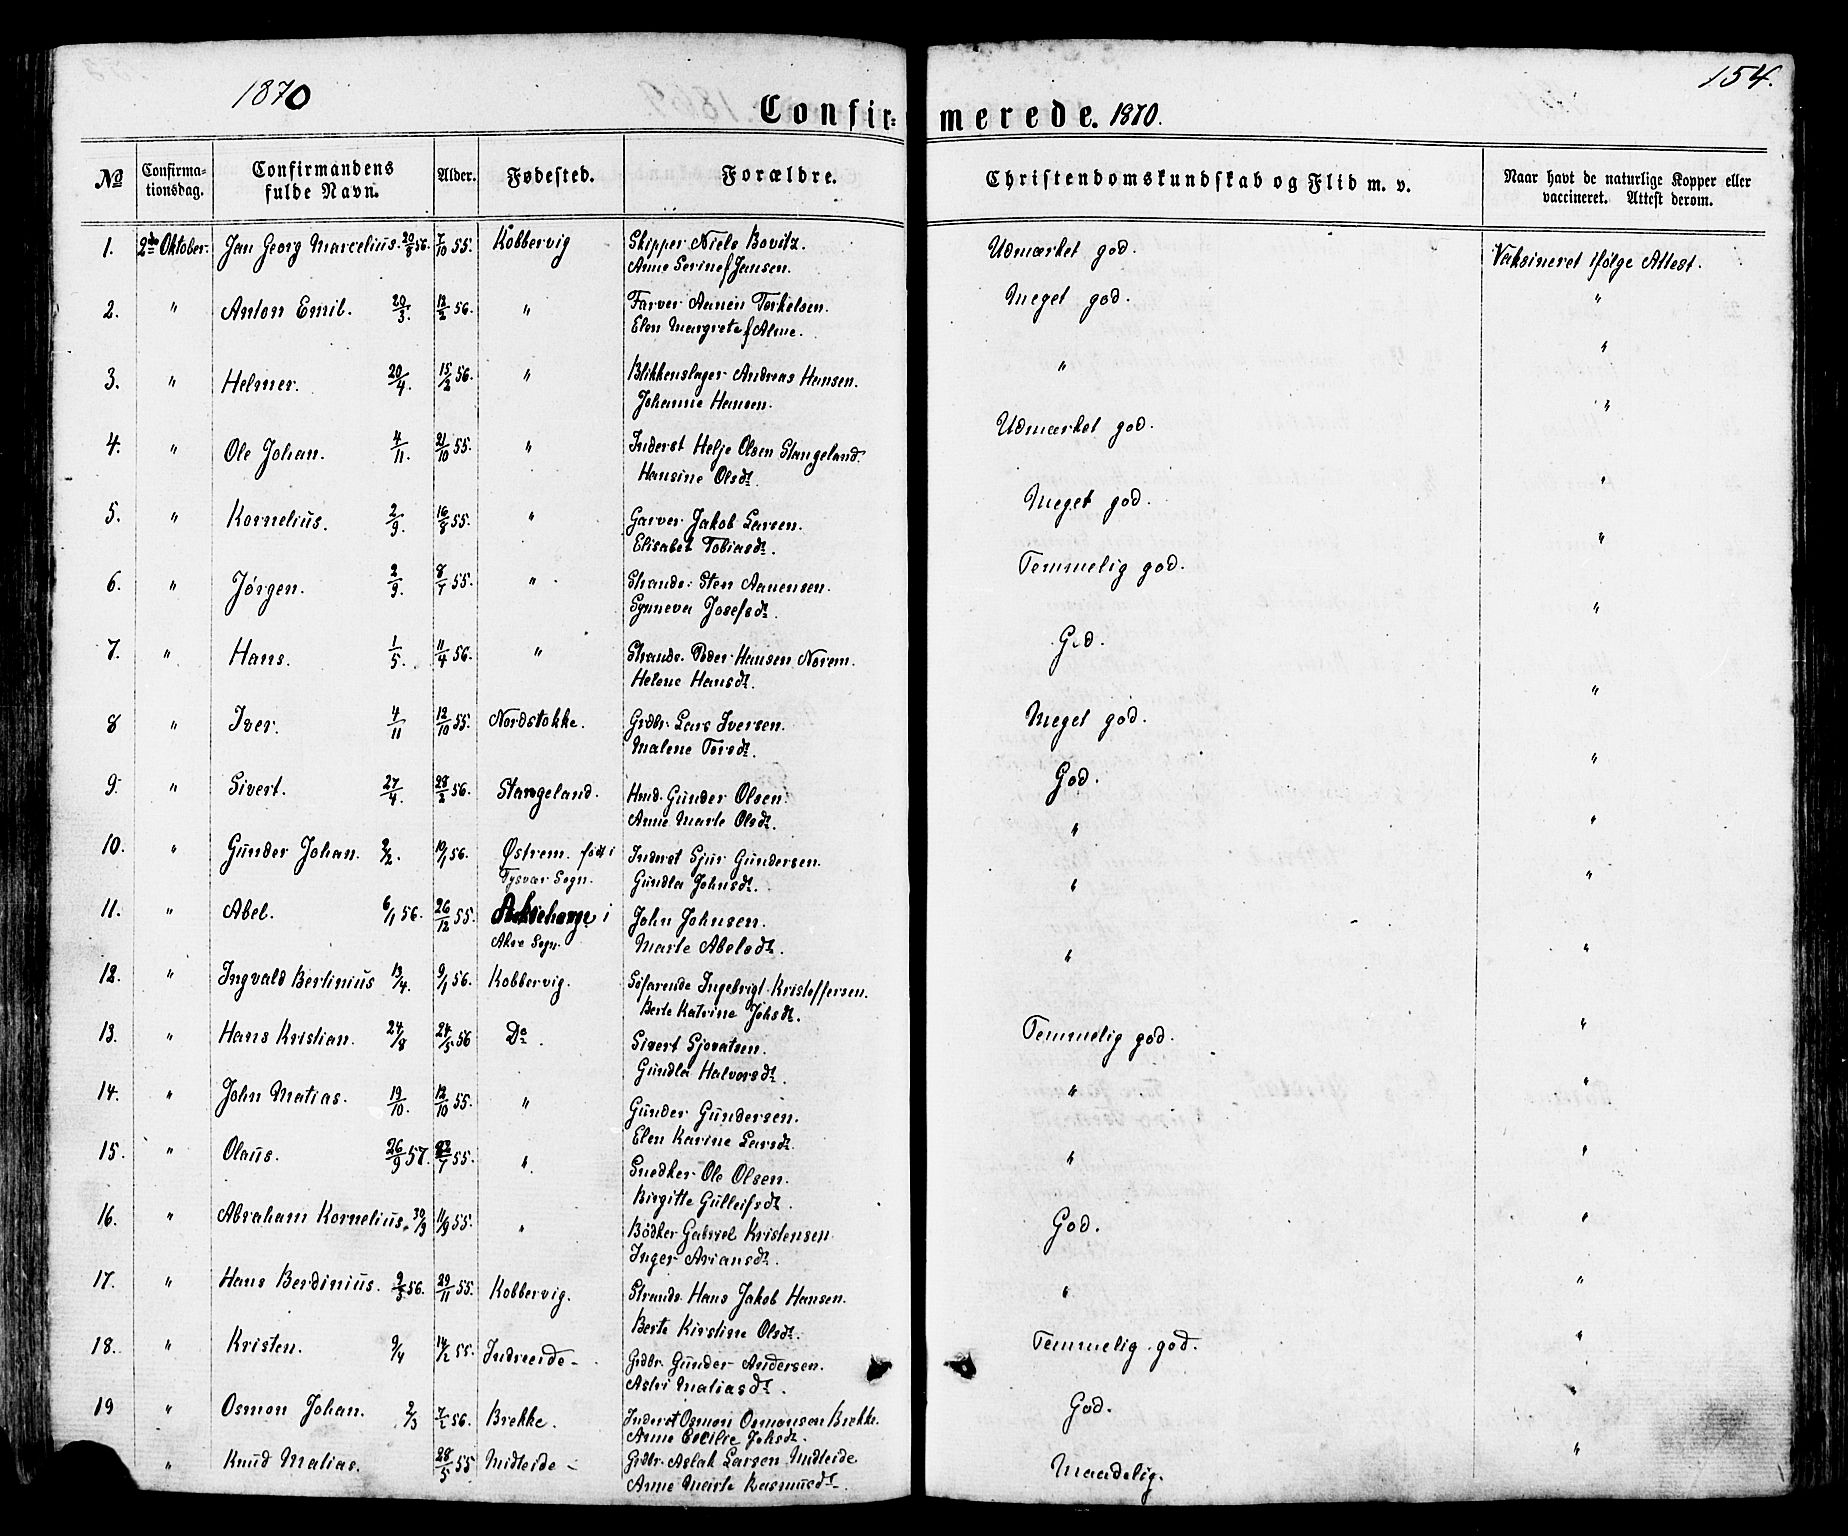 154.
1870
Confirmerede. 1870.
No Confirmationsdag. Confirmandens fulde Navn. Alder. Fødested. Forældre. Christendomskundskab og Flid m. v. Naar havt de naturlige Kopper eller vaccineret. Attest derom.
1. 2den Oktober. Jan Georg Marcelius. 20/8 56. 7/10 55. Kobbervig Skipper Niels Bovitz. Udmærket god. Vaksineret ifølge Attest.
Anne Serine f Jansen.
2. " Anton Emil. 20/3. 12/2 56. " Farver Aanen Torkelsen. Meget god. "
Elen Margrete f Alme.
3. " Helmer. 20/4. 15/2 56. " Blikkenslager Andreas Hansen. " "
Johanne Hansen.
4. " Ole Johan. 4/11. 21/10 55. " Inderst Helje Olsen Stangeland. Udmærket god. "
Hansine Olsdt.
5. " Kornelius. 2/9. 16/8 55. " Garver Jakob Larsen. Meget god. "
Elisabet Tobiasdt.
6. " Jörgen. 2/9. 8/7 55. " Strands. Sten Aanensen. Temmelig god. "
Synneva Josefsdt.
7. " Hans. 1/5. 11/4 56. " Strands. Peder Hansen Norem. God. "
Helene Hansdt.
8 " Iver. 4/11 12/10 55. Nordstokke. Grdbr. Lars Iversen. Meget god. "
Malene Torsdt.
9. " Sivert. 27/4. 28/2 56. Stangeland. Hmd. Gunder Olsen. God. "
Anne Marte Olsdt.
10. " Gunder Johan. 2/2. 10/1 56. Østrem. født i Inderst Sjur Gundersen. " "
Tysvær Sogn. Gundla Johnsdt.
11. " Abel. 6/1 56. 26/12 55. i John Johnsen. " "
Akre Sogn. Marte Abelsdt.
12. " Ingvald Bertinius 13/4. 9/1 56. Kobbervig. Söfarende Ingebrigt Kristoffersen. " "
Berte Katrine Johsdt.
13. " Hans Kristian. 24/8 24/5 56 Do. Sivert Sjovatsen. Temmelig god. "
Gundla Halvorsdt.
14. " John Matias. 19/10. 12/10 55. " Gunder Gundersen. " "
Elen Karine Larsdt.
15. " Olaus. 26/9 57. 55. " Snedker Ole Olsen. " "
Birgitte Gulleifsdt.
16. " Abraham Kornelius. 30/9 11/9 55. " Bödker Gabriel Kristensen God. "
Inger Ariansdt.
17. " Hans Berdinius. 2/3 56. 29/11 55. Kobbervig. Strands. Hans Jakob Hansen. " "
Berte Kirstine Olsdt.
18. " Kristen. 9/4 14/2 55. Indreeide - Grdbr. Gunder Andersen. Temmelig god. "
Astri Matiasdt.
19 " Osmon Johan. 2/3 7/2 56. Brekke. Inderst Osmon Osmonsen Brekke. God. "
Anne Cecilie Johsdt.
" Knud Matias. 28/5 55 Midteide - Grdbr. Aslak Larsen Midteide Maadelig. "
Anne Marte Rasmusdt.